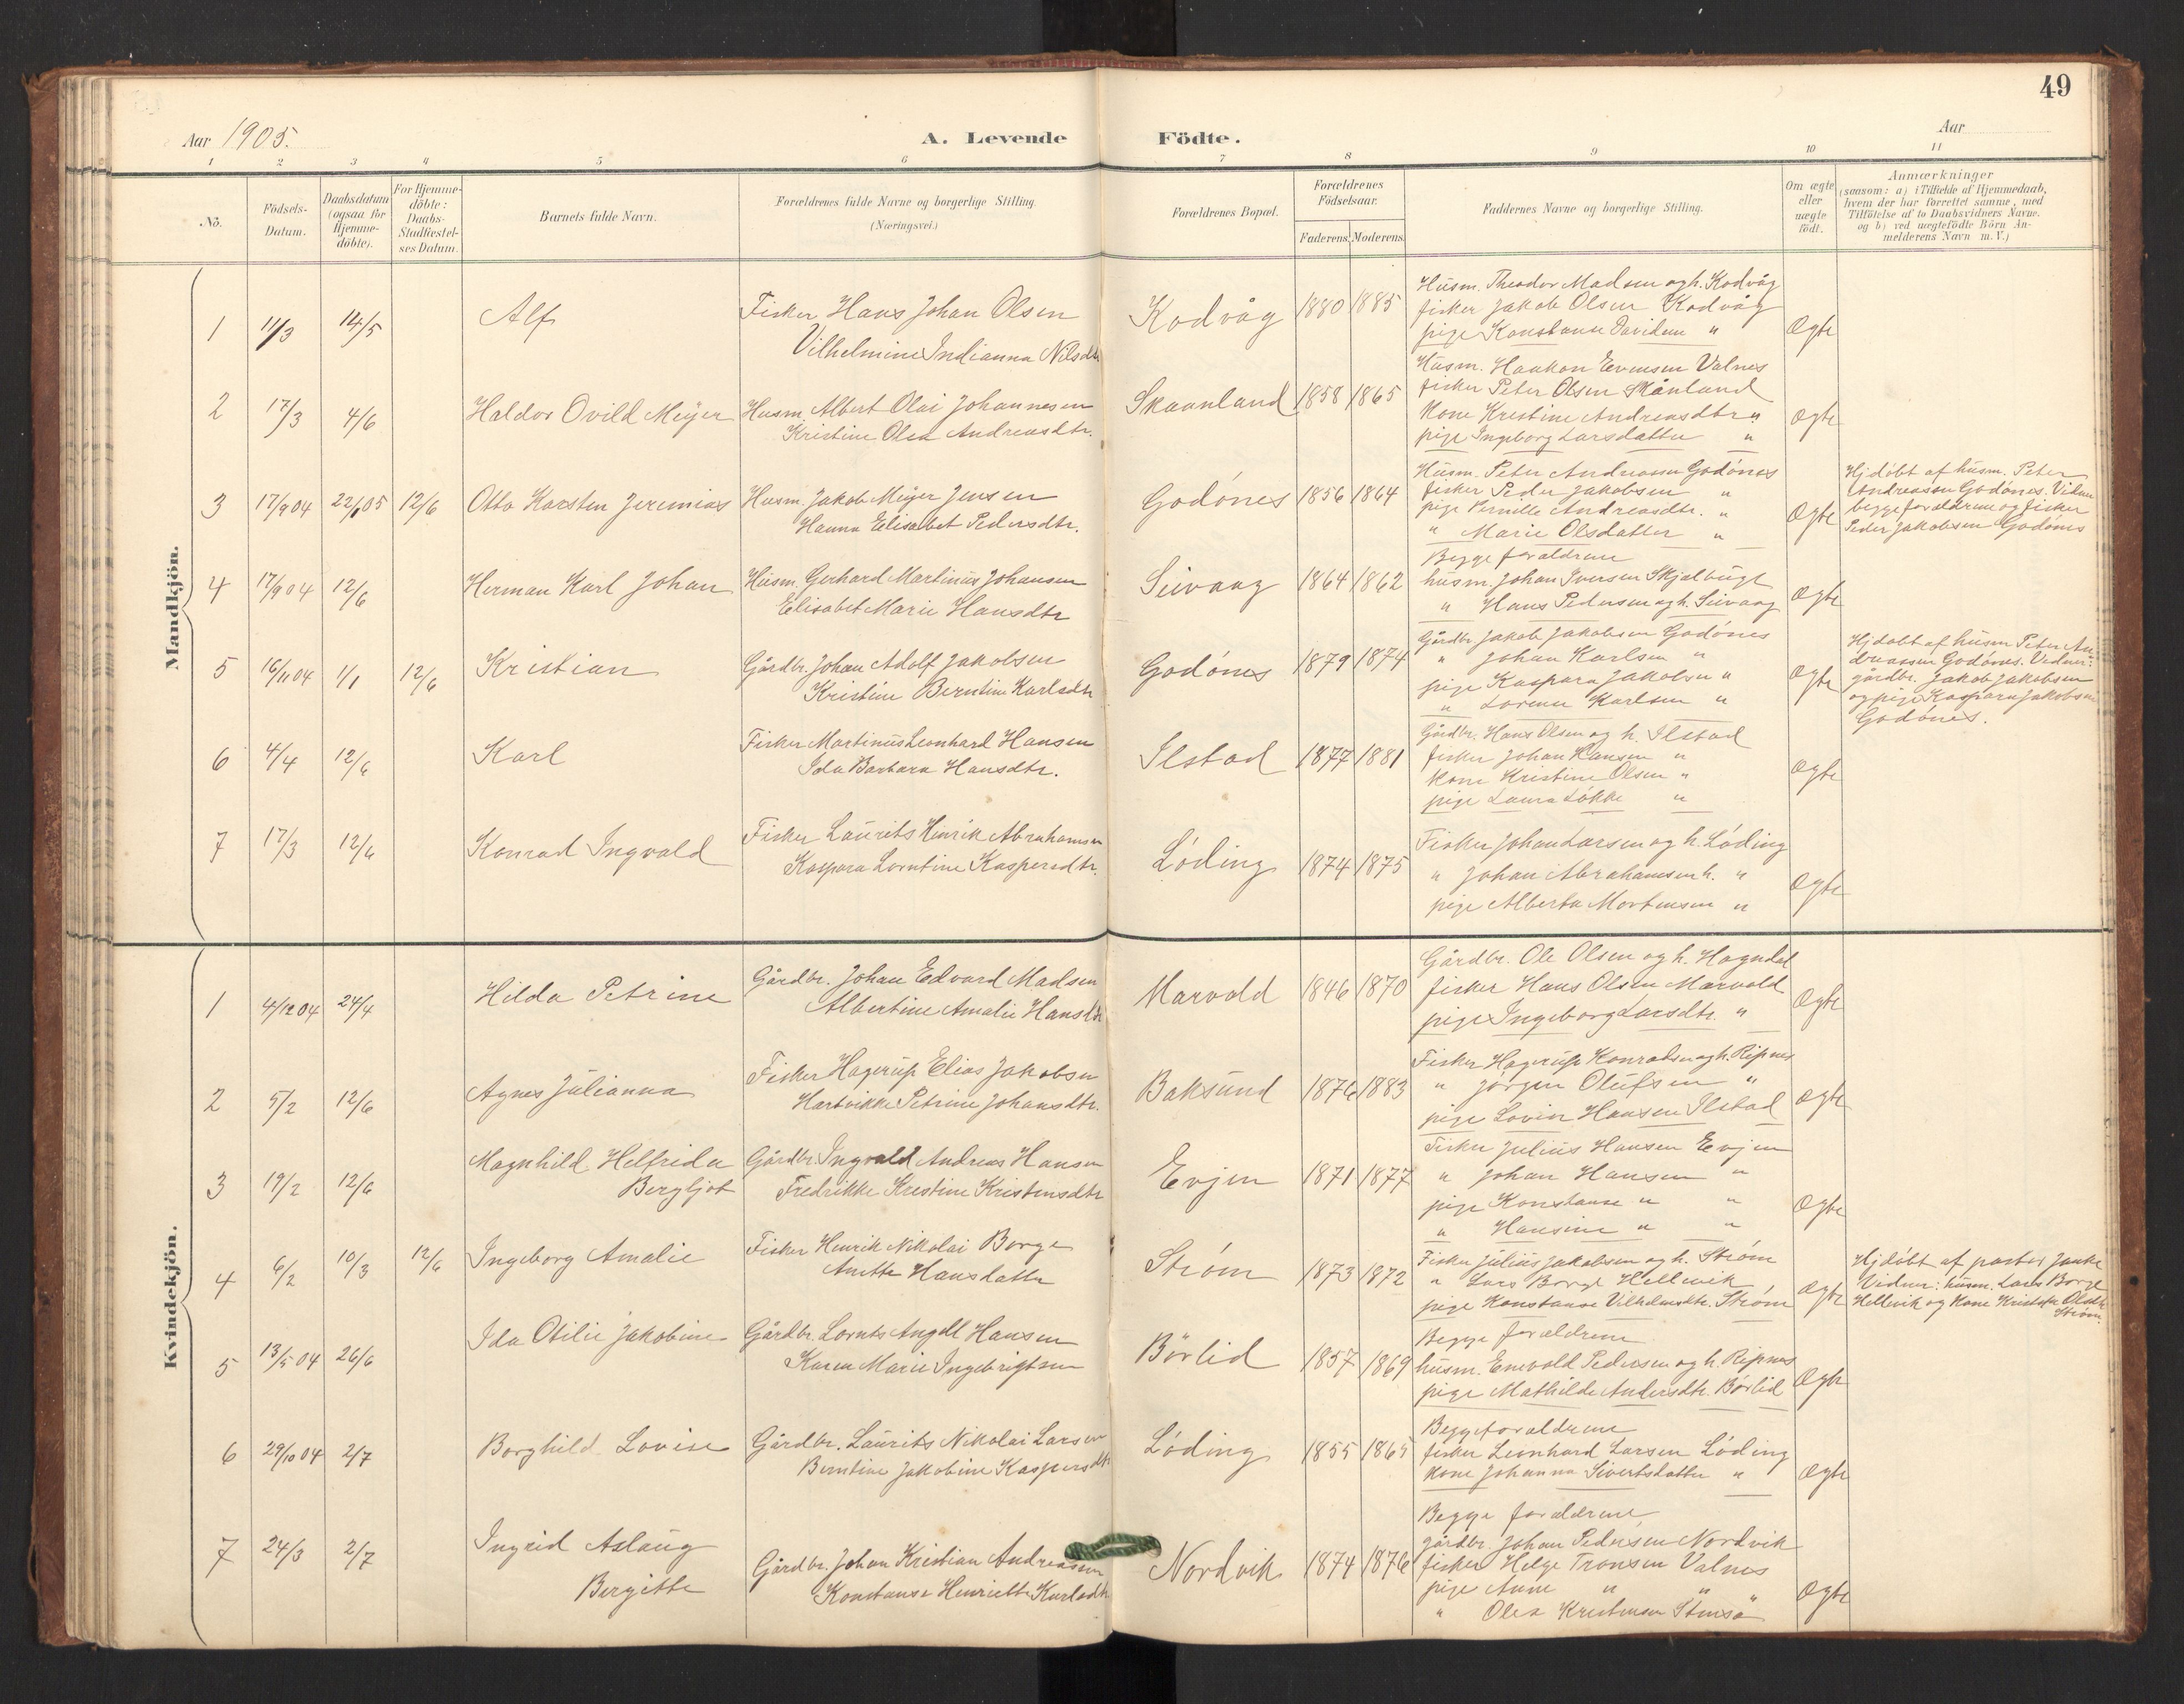 49
Aar 1905.
A. Levende Födte.
Aar
1 2 3 4 5 6 7 8 9 10 11
No.
Födsels-Datum.
Daabsdatum (ogsaa för Hjemme-döbte).
For Hjemme-döbte: Daabs-Stadfæstel-ses Datum.
Barnets fulde Navn.
Forældrenes fulde Navne og borgerlige Stilling. (Næringsvei.)
Forældrenes Bopæl.
Forældrenes Födselsaar.
Faderens. Moderens.
Faddernes Navne og borgerlige Stilling.
Om ægte eller uægte födt.
Anmærkninger
(saasom: a) i Tilfælde af Hjemmedaab,
hvem der har forrettet samme, med
Tilföielse af to Daabsvidners Navne.
og b) ved uægtefödte Börn An-
melderens Navn m. V.)
Mandkjön.
1 11/3 14/5 Alf
Fisker Hans Johan Olsen
Vilhelmine Indianna Nilsdtr
Kodvåg 1880 1885
Husm. Theodor Madsen og h. Kodvåg
fisker Jakob Olsen Kodvåg
pige Konstanse Davidsen "
Ægte
2 17/3 4/6 Haldor Ovild Meyer
Husm. Albert Olai Johannesen
Kristine Olea Andreasdtr.
Skaanland 1858 1865
Husm. Haakon Evensen Valnes
fisker Peter Olsen Skånland
Kone Kristine Andreasdtr "
pige Ingeborg Larsdatter "
Ægte
3 17/9 04 22/1 05 12/6 Otto Karsten Jeremias
Husm. Jakob Meyer Jensen
Hanna Elisabet Pedersdtr.
Godönes 1856 1864
Husm. Peter Andreassen Godönes
fisker Peder Jakobsen "
pige Pernille Andreasdtr. "
" Marie Olsdatter "
Ægte
Hjdöbt af husm. Peter
Andreassen Godönes. Vidner
begge forældrene og fisker
Peder Jakobsen Godönes
4 17/9 04 12/6 Herman Karl Johan
Husm. Gerhard Martinus Johansen
Elisabet Marie Hansdtr
Seivaag 1864 1862
Begge forældrene
husm. Johan Iversen Skjælbugt
" Hans Pedersen og h. Seivaag
Ægte
5 16/11 04 1/1 12/6 Kristian
Gårdbr. Johan Adolf Jakobsen
Kristine Berntine Karlsdtr
Godönes 1879 1874
Gårdbr. Jakob Jakobsen Godönes
" Johan Karlsen "
pige Kaspara Jakobsen "
" Lorense Karlsen "
Ægte
Hjdöbt af husm Peter An-
dreassen Godönes. Vidner:
gårdbr. Jakob Jakobsen
og pige Kaspara Jakobsen
Godönes.
6 4/4 12/6 Karl
Fisker Martinus Leonhard Hansen
Ida Barbara Hansdtr.
Ilstad 1877 1881
Gårdbr. Hans Olsen og h. Ilstad
fisker Johan Hansen "
kone Kristine Olsen "
pige Laura Lökke "
Ægte
7 17/3 12/6 Konrad Ingvald
Fisker Laurits Hinrik Abrahamsen
Kaspara Lorntine Kaspersdtr.
Löding 1874 1875
Fisker Johan Larsen og h. Löding
" Johan Abrahamsen h. "
pige Alberta Mortensen "
Ægte
Kvindekjön.
1 4/12 04 24/4 Hilda Petrine
Gårdbr. Johan Edvard Madsen
Albertine Amalie Hansdtr
Marvold 1846 1870
Gårdbr. Ole Olsen og h. Hogndal
fisker Hans Olsen Marvold
pige Ingeborg Larsdtr. "
Ægte
2 5/2 12/6 Agnes Julianna
Fisker Hagerup Elias Jakobsen
Hartvikke Petrine Johansdtr.
Baksund 1876 1883
Fisker Hagerup Konradsen og h. Ripnes
" Jörgen Olufsen "
pige Lovise Hansen Ilstad
Ægte
3 19/2 12/6 Magnhild Helfrida
Bergljot
Gårdbr. Ingvald Andreas Hansen
Fredrikke Kristine Kristensdtr
Evjen 1871 1877
Fisker Julius Hansen Evjen
" Johan Hansen "
pige Konstanse " "
" Hansine " "
Ægte
4 6/2 10/3 12/6 Ingeborg Amalie
Fisker Henrik Nikolai Borge
Anette Hansdatter
Ström 1873 1872
Fisker Julius Jakobsen og h. Ström
" Lars Borge Hellevik
pige Konstanse Vilhelmsdtr. Ström
Ægte
Hjdöbt af pastor
Vidner: husm. Lars Borge
Hellevik og kone Olsdtr
Ström.
5 13/5 04 26/6 Ida Otilie Jakobine
Gårdbr. Lornts Angell Hansen
Karen Marie Ingebrigtsen
Börlid 1857 1869
Begge forældrene
husm. Enevold Pedersen og h. Ripnes
pige Mathilde Andersdtr. Börlid
Ægte
6 29/10 04 2/7 Borghild Lovise
Gårdbr. Laurits Nikolai Larsen
Berntine Jakobine Kaspersdtr
Löding 1855 1865
Begge forældrene
fisker Leonhard Larsen Löding
kone Johanna Sivertsdatter "
Ægte
7 24/3 2/7 Ingrid Aslaug
Bergitte
Gårdbr. Johan Kristian Andreassen
Konstanse Henriette Karlsdtr
Nordvik 1874 1876
Begge forældrene
gårdbr. Johan Pedersen Nordvik
fisker Helge Tronsen Valnes
pige Anne " "
" Olea Kristensen
Ægte